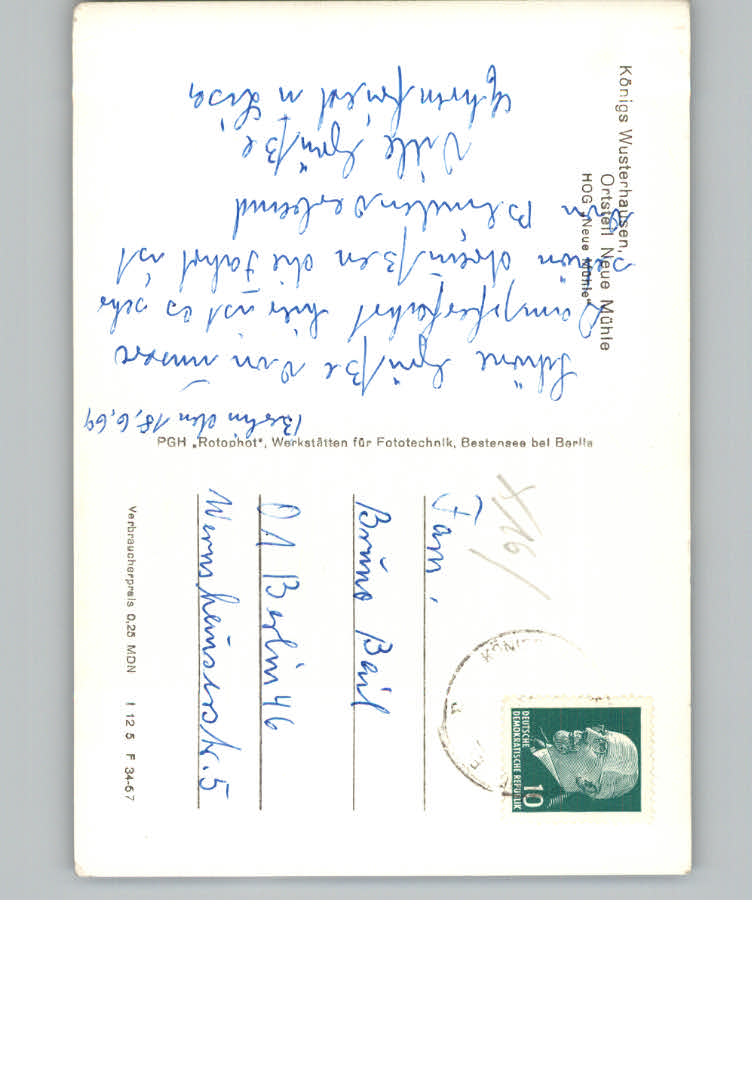 Königs Wusterhausen,
Ortsteil Neue Mühle
HOG „Neue Mühle"
Berlin den 18,6,69
Schöne Grüße von unsere
Dampferfahrt hier ist es sehr
schön draußen die Fahrt ist
Viele Grüße
PGH „Rotophot", Werkstätten für Fototechnik, Bestensee bei Berlin
Fam,
Bruno Beil
Berlin 46
Wernshauserstr. 5
Verbraucherpreis 0,25 MDN I 12 5 F 34-67
DEUTSCHE
DEMOKRATISCHE REPUBLIK
10